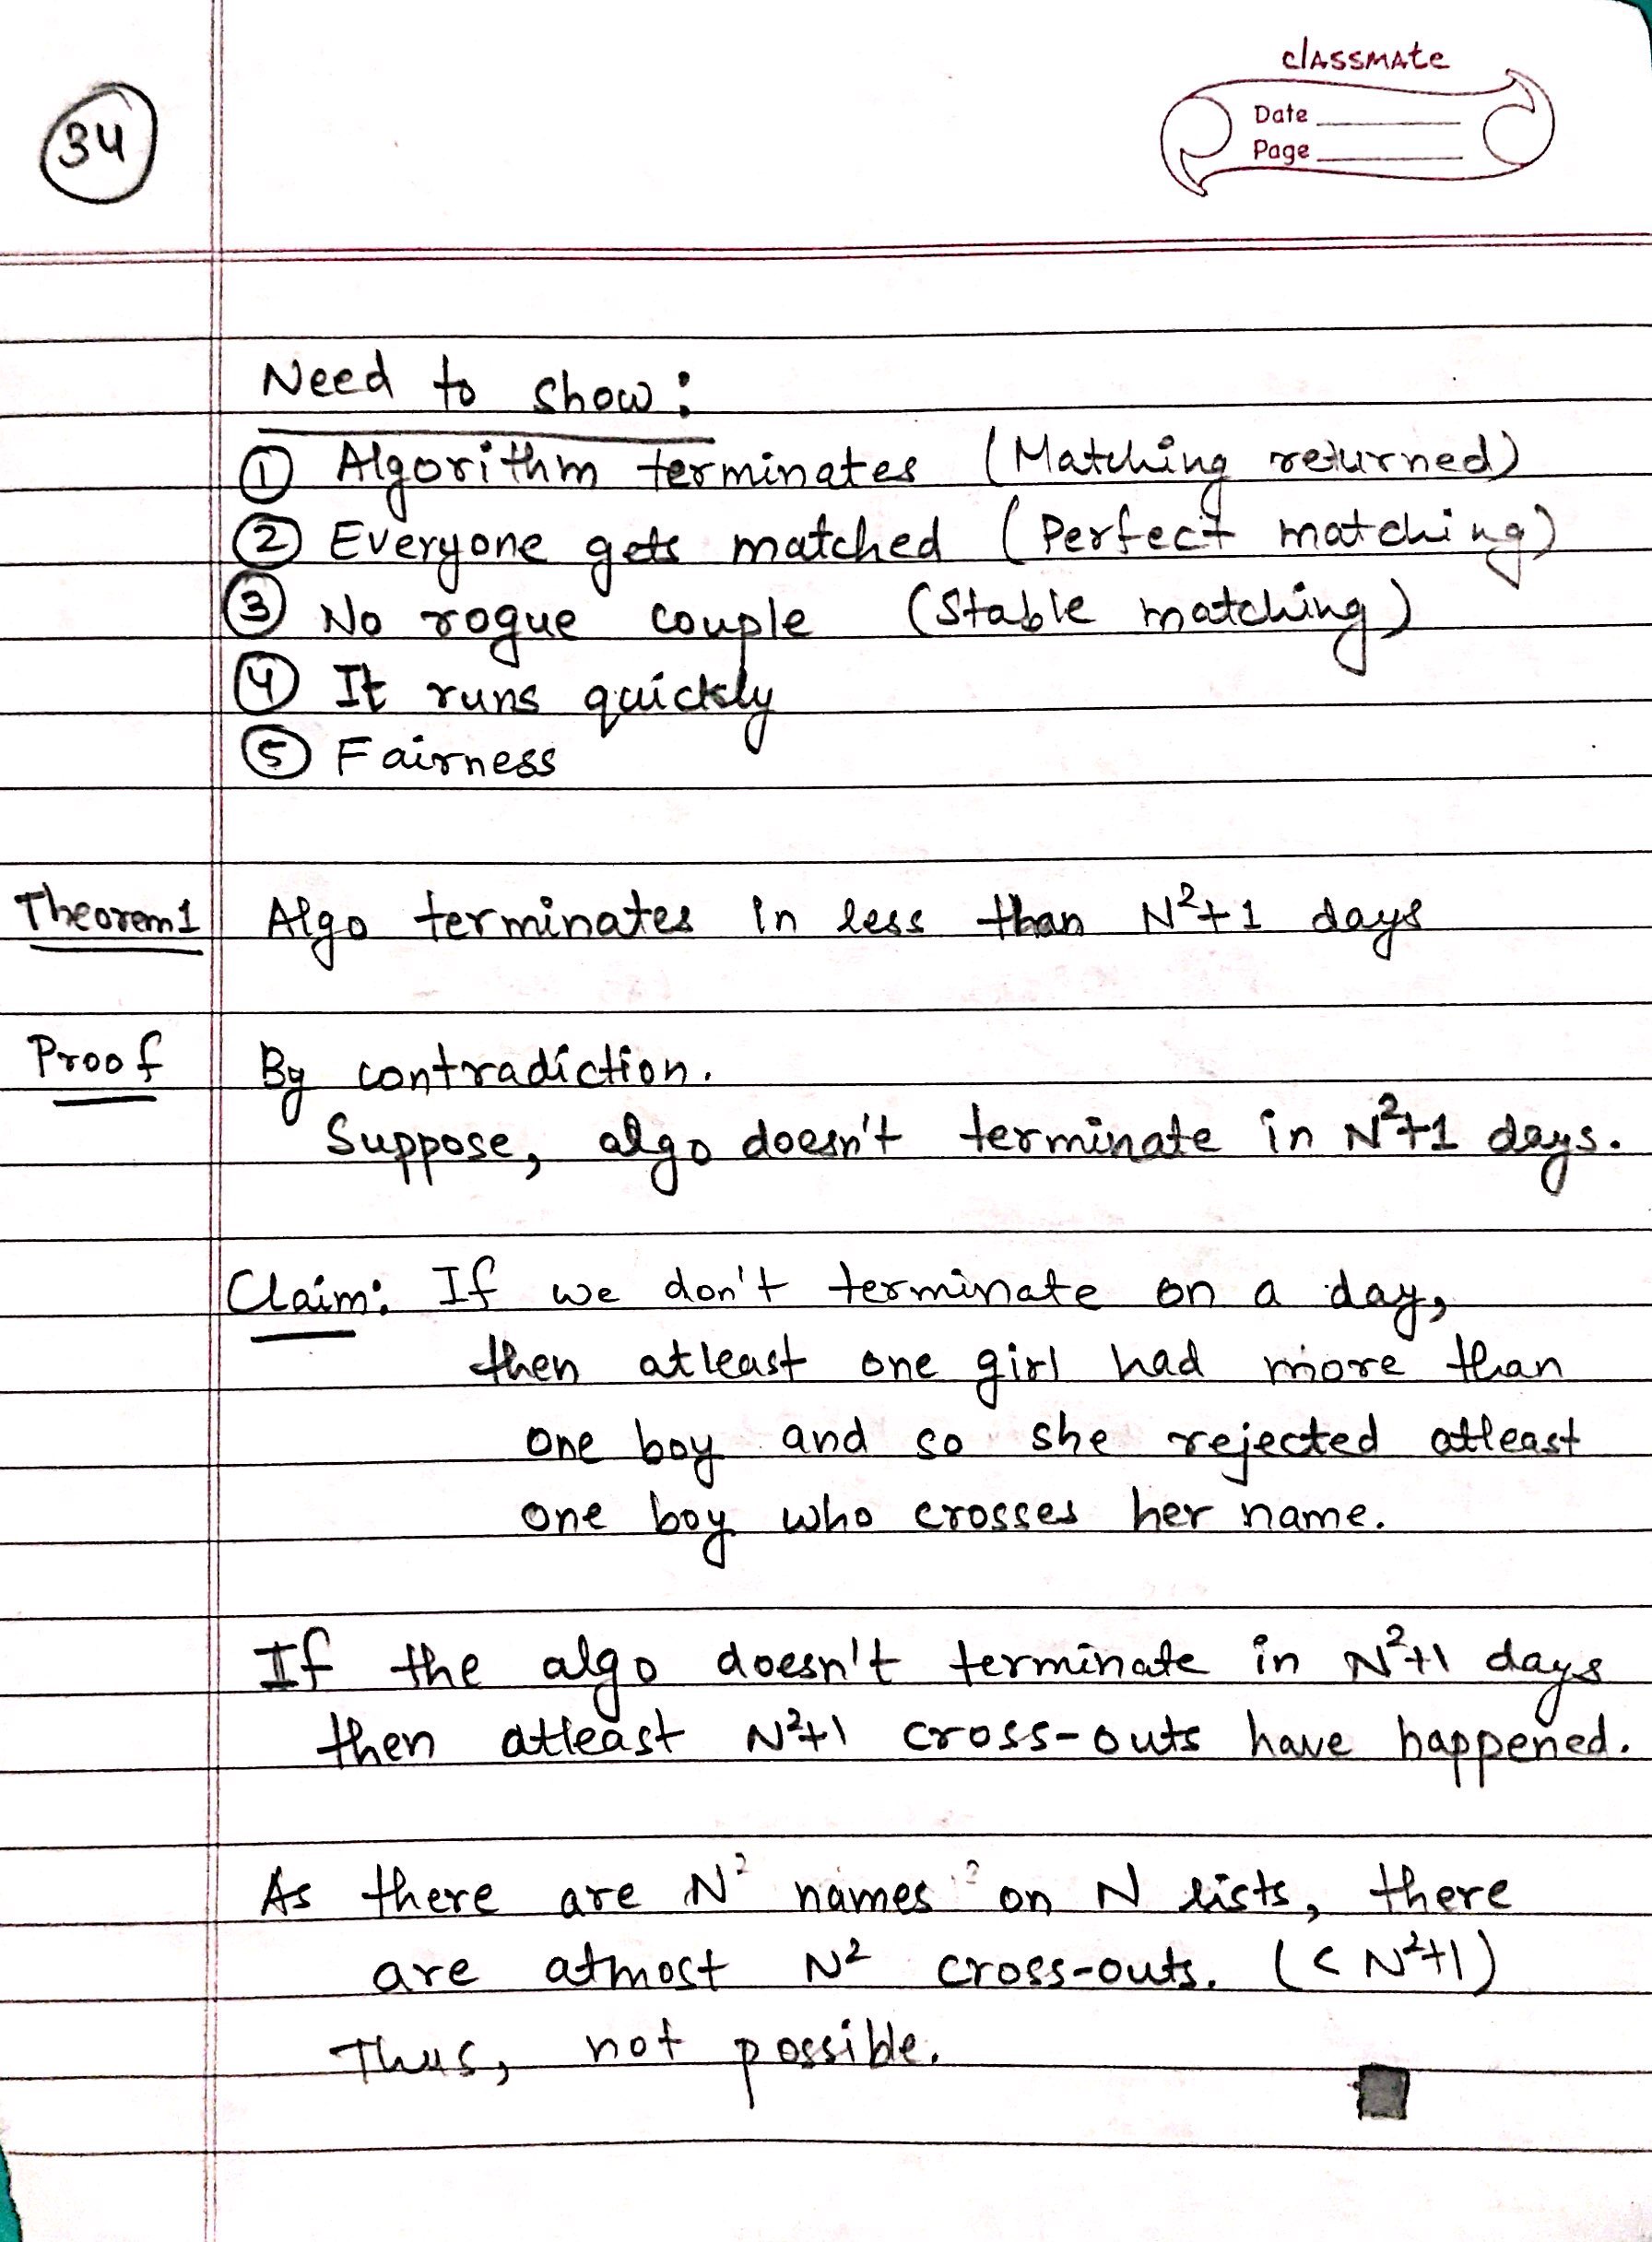 classmate
Date
Page
34
Need to show:
① Algorithm terminates (Matching returned)
② Everyone gets matched (Perfect matching)
③ No rogue couple (Stable matching)
④ It runs quickly
⑤ Fairness
Theorem 1 Algo terminates in less than N²+1 days
Proof By contradiction.
Suppose, algo doesn't terminate in N²+1 days.
Claim: If we don't terminate on a day,
then atleast one girl had more than
one boy and so she rejected atleast
one boy who crosses her name.
If the algo doesn't terminate in N²+1 days
then atleast N²+1 cross-outs have happened.
As there are N² names on N lists, there
are atmost N² cross-outs. (< N²+1)
Thus, not possible.